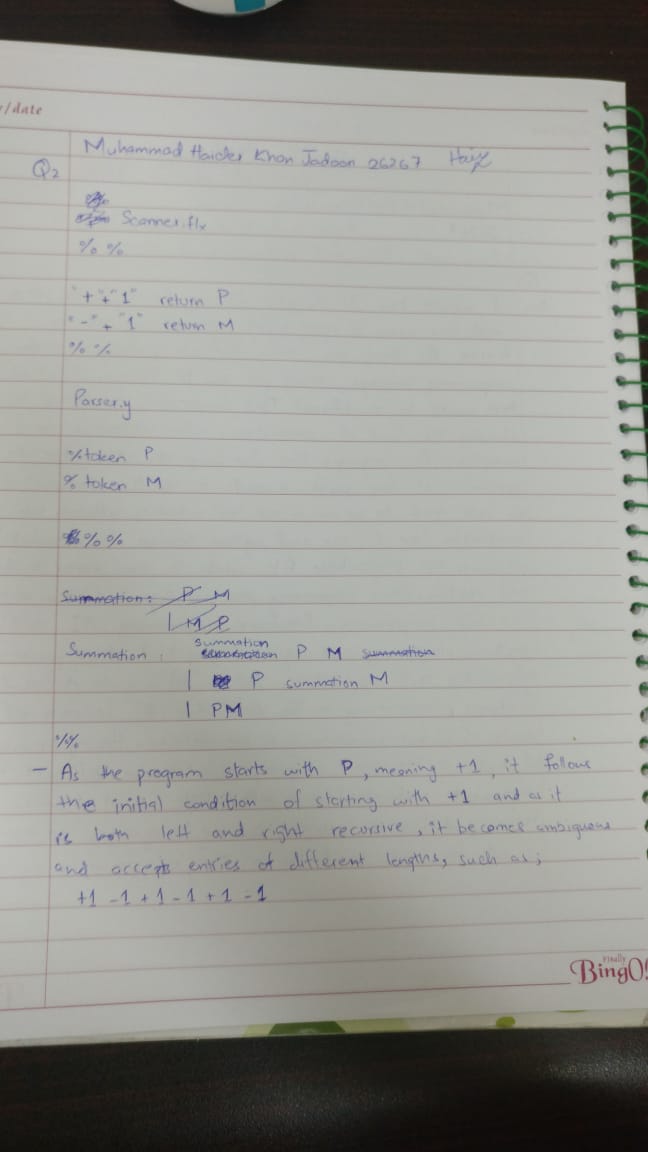 /date
Muhammad Haider Khan Jadoon 26267
Q2
Scanner.flx
%%
"+"+"1" return P
"-"+"1" return M
%%
Parser.y
%token P
%token M
%%
Summation: P M
| M P
Summation : summation P M summation
| P summation M
| PM
%%
- As the program starts with P, meaning +1, it follows
the initial condition of starting with +1 and as it
is both left and right recursive, it becomes ambiguous
and accepts entries of different lengths, such as;
+1 -1 +1 -1 +1 -1
Finally
BingO!